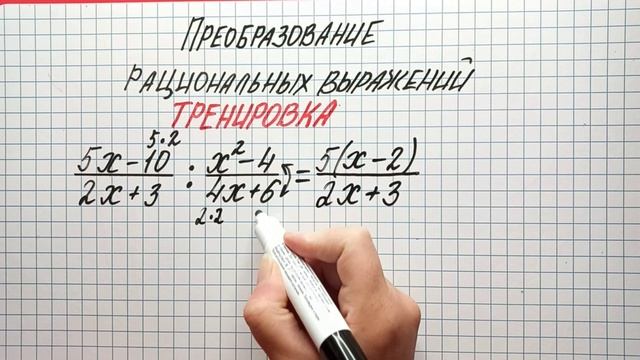 ПРЕОБРАЗОВАНИЕ
РАЦИОНАЛЬНЫХ ВЫРАЖЕНИЙ
ТРЕНИРОВКА
5·2
5x-10 / 2x+3 : x²-4 / 4x+6 = 5(x-2) / 2x+3
2·2